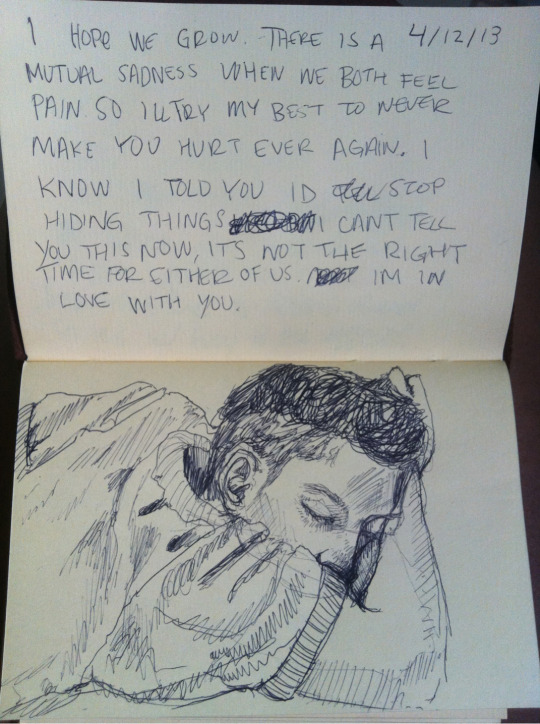 I HOPE WE GROW. THERE IS A 4/12/13
MUTUAL SADNESS WHEN WE BOTH FEEL
PAIN. SO ILL TRY MY BEST TO NEVER
MAKE YOU HURT EVER AGAIN. I
KNOW I TOLD YOU ID STOP
HIDING THINGS I CANT TELL
YOU THIS NOW, IT'S NOT THE RIGHT
TIME FOR EITHER OF US. IM IN
LOVE WITH YOU.